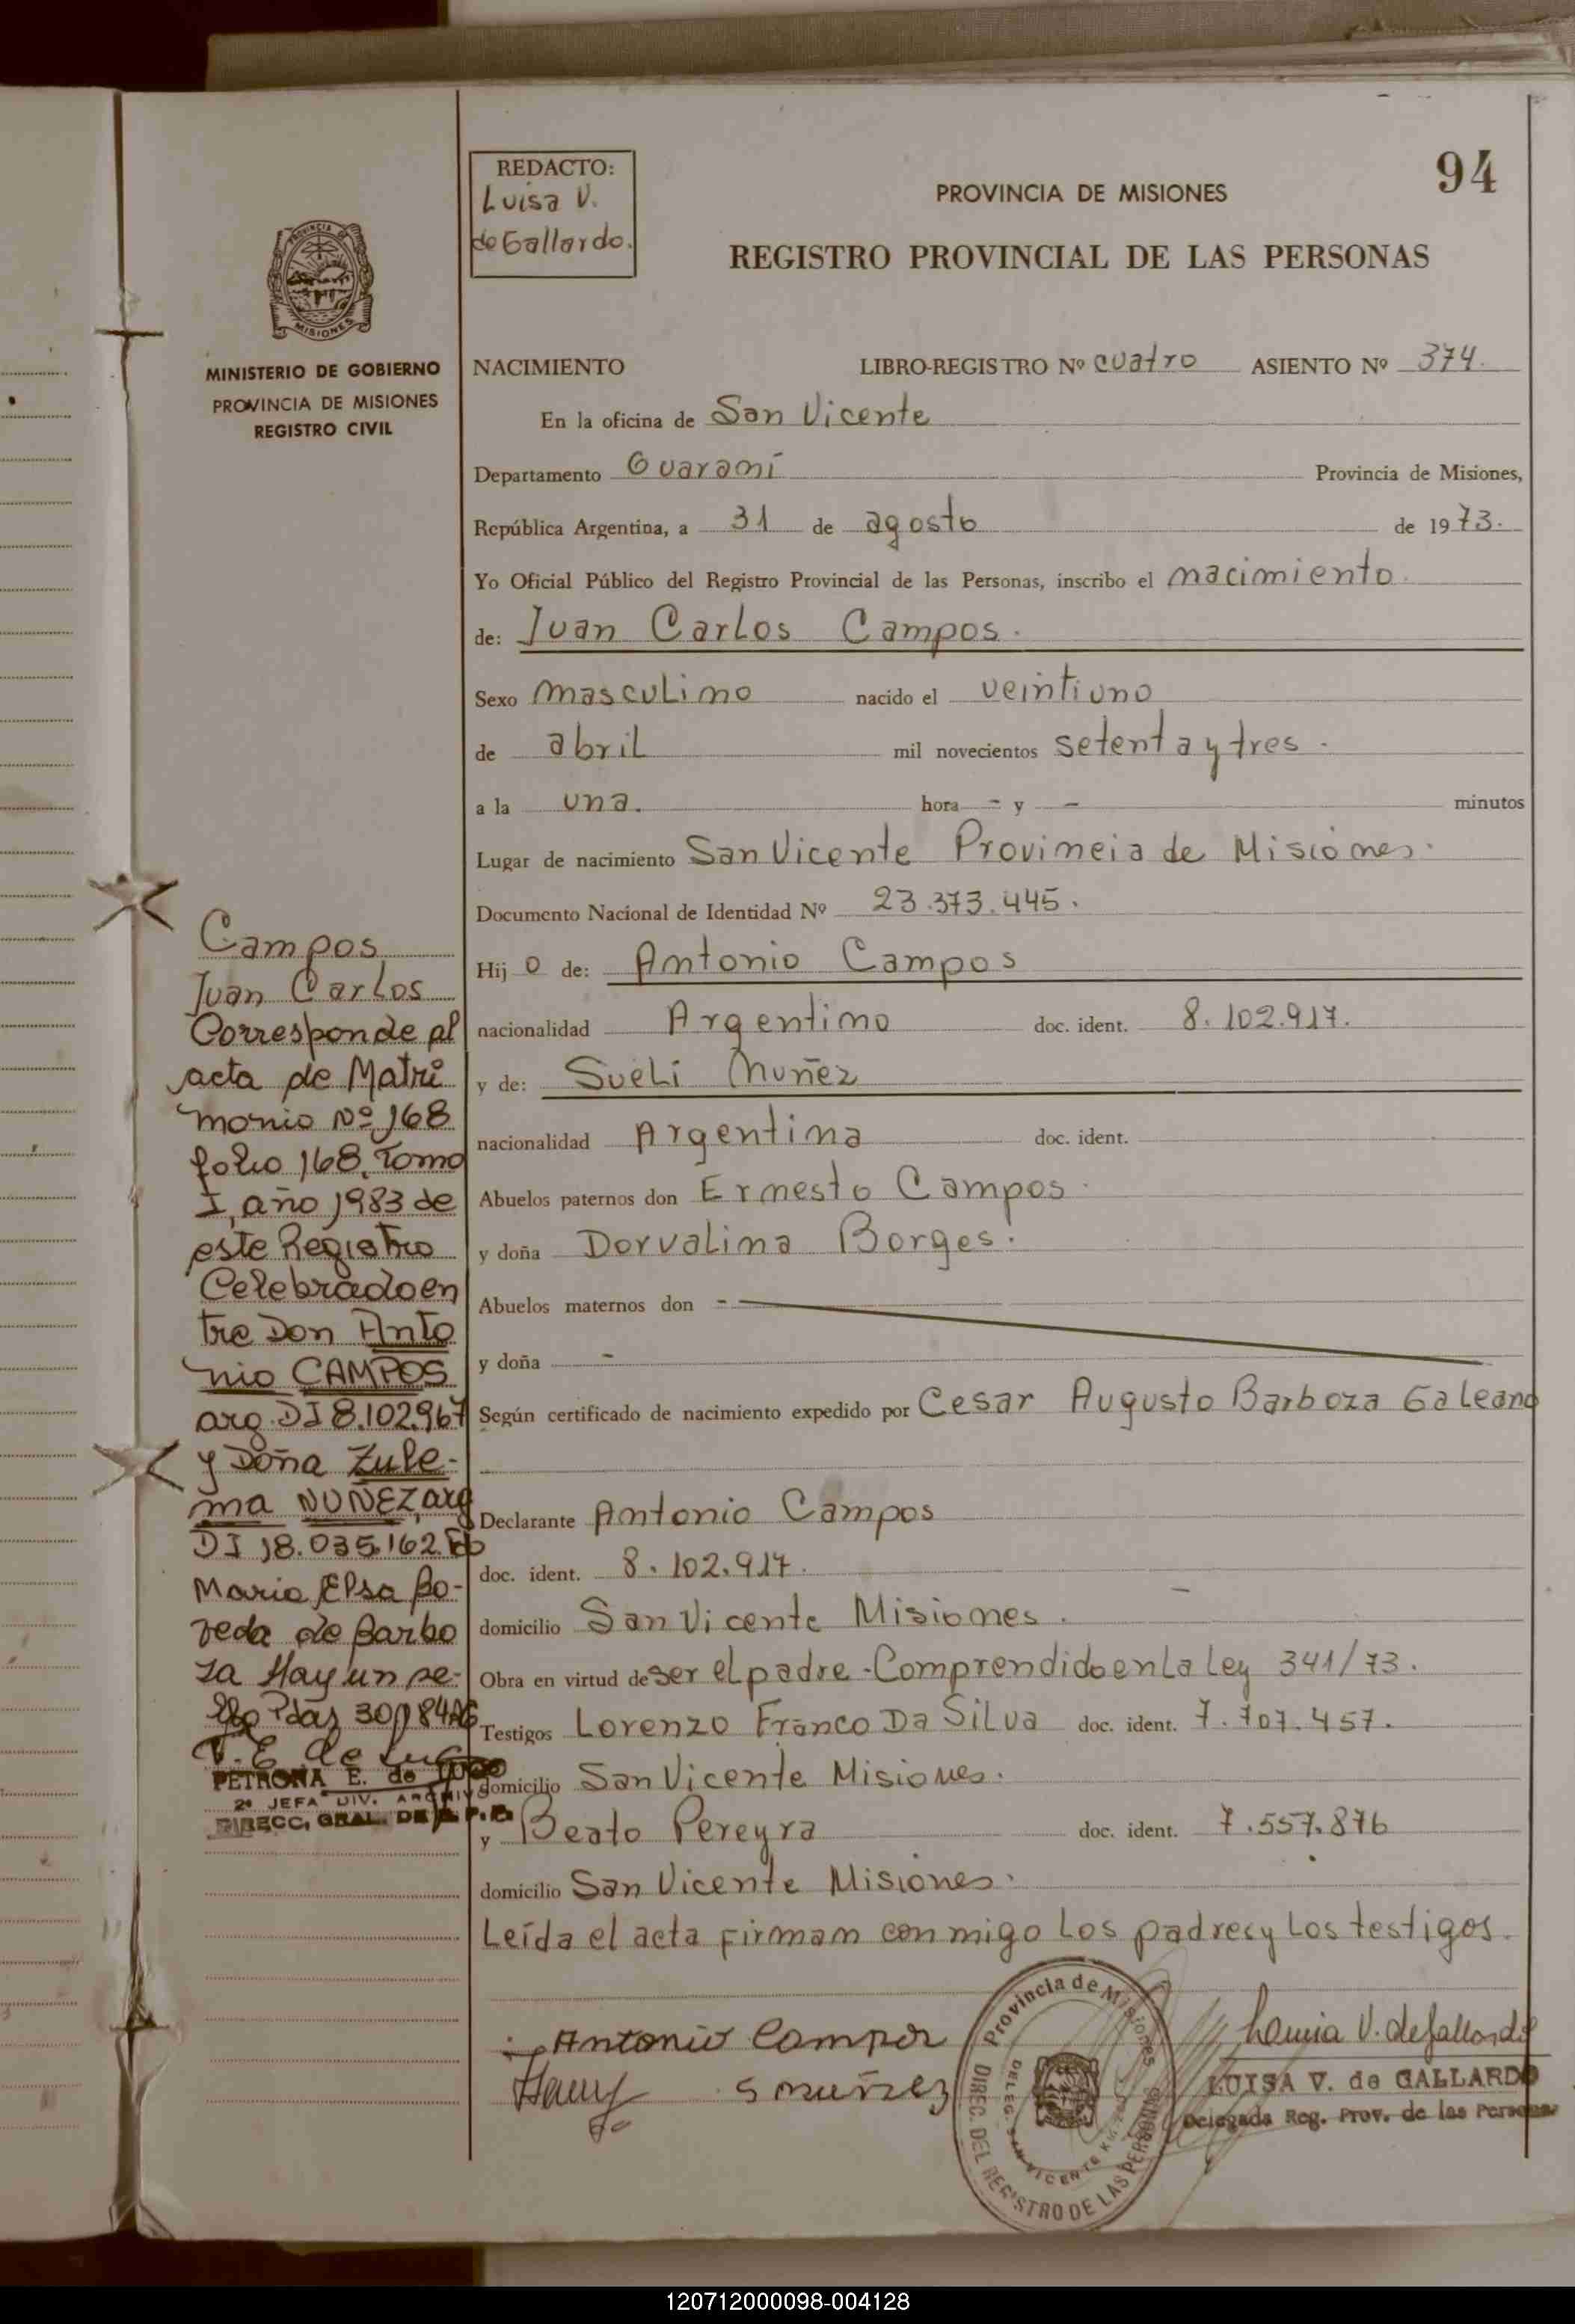 94
REDACTO:
Luisa V.
de Gallardo.
PROVINCIA DE MISIONES
REGISTRO PROVINCIAL DE LAS PERSONAS
PROVINCIA DE
MISIONES
MINISTERIO DE GOBIERNO
PROVINCIA DE MISIONES
REGISTRO CIVIL
NACIMIENTO LIBRO-REGISTRO Nº cuatro ASIENTO Nº 374.
En la oficina de San Vicente
Departamento Guaraní Provincia de Misiones,
República Argentina, a 31 de agosto de 1973.
Yo Oficial Público del Registro Provincial de las Personas, inscribo el nacimiento
de: Juan Carlos Campos.
Sexo masculino nacido el veintiuno
de abril mil novecientos setenta y tres.
a la una. hora - y - minutos
Lugar de nacimiento San Vicente Provincia de Misiones.
Documento Nacional de Identidad Nº 23.373.445.
Hijo de: Antonio Campos
nacionalidad Argentino doc. ident. 8.102.917.
y de: Sueli Nuñez
nacionalidad Argentina doc. ident.
Abuelos paternos don Ernesto Campos
y doña Dorvalina Borges.
Abuelos maternos don -
y doña -
Según certificado de nacimiento expedido por Cesar Augusto Barboza Galeano
Declarante Antonio Campos
doc. ident. 8.102.917.
domicilio San Vicente Misiones.
Obra en virtud de ser el padre - Comprendido en La Ley 341/73.
Testigos Lorenzo Franco Da Silva doc. ident. 7.707.457.
domicilio San Vicente Misiones.
y Beato Pereyra doc. ident. 7.557.876
domicilio San Vicente Misiones.
Leída el acta firman conmigo Los padres y Los testigos.
Campos
Juan Carlos
Corresponde al
acta de Matri
monio Nº 168
folio 168, Tomo
I, año 1983 de
este Registro
Celebrado en
tre Don Anto
nio CAMPOS
arg. DI 8.102.967
y Doña Zule-
ma NUÑEZ, arg
DI 18.035.162. Fdo
Maria Elsa Bo-
veda de Barbo
za Hay un se-
llo Pdas
PETRONA E. de LUGO
2º JEFA DIV. ARCHIVO
DIRECC. GRAL. DE R. P. P.
Antonio Campos
S nuñez
Provincia de Misiones
DIREC. DEL REGISTRO DE LAS PERSONAS
DELEG. SAN VICENTE
Luisa V. de Gallardo
LUISA V. de GALLARDO
Delegada Reg. Prov. de las Personas
120712000098-004128